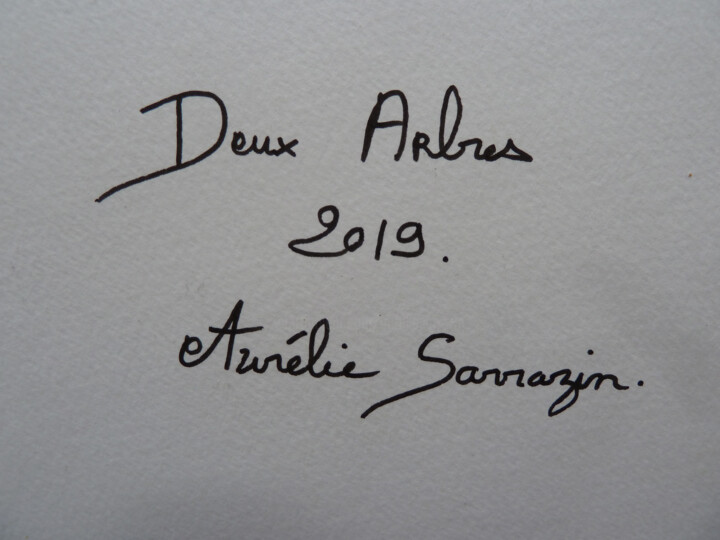 Deux Arbres
2019.
Aurélie Sarrazin.